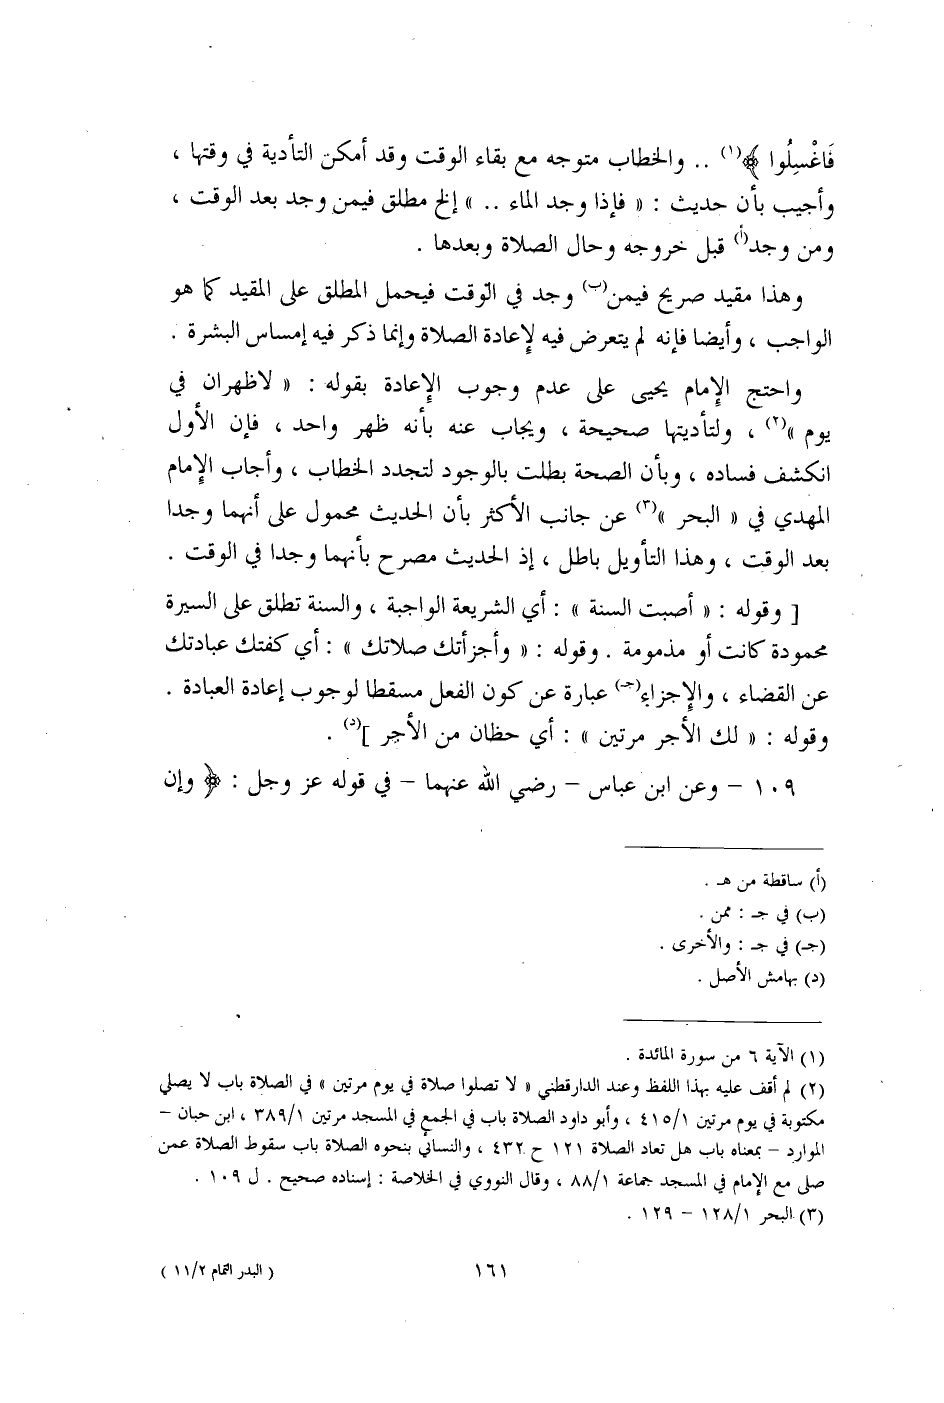 فَاغْسِلُوا ﴾(١) .. والخطاب متوجه مع بقاء الوقت وقد أمكن التأدية في وقتها ،
وأجيب بأن حديث : « فإذا وجد الماء .. » إلخ مطلق فيمن وجد بعد الوقت ،
ومن وجد(أ) قبل خروجه وحال الصلاة وبعدها .
وهذا مقيد صريح فيمن(ب) وجد في الوقت فيحمل المطلق على المقيد كما هو
الواجب ، وأيضا فإنه لم يتعرض فيه لإعادة الصلاة وإنما ذكر فيه إمساس البشرة .
واحتج الإمام يحيى على عدم وجوب الإعادة بقوله : « لاظهران في
يوم »(٢) ، ولتأديتها صحيحة ، ويجاب عنه بأنه ظهر واحد ، فإن الأول
انكشف فساده ، وبأن الصحة بطلت بالوجود لتجدد الخطاب ، وأجاب الإمام
المهدي في « البحر »(٣) عن جانب الأكثر بأن الحديث محمول على أنهما وجدا
بعد الوقت ، وهذا التأويل باطل ، إذ الحديث مصرح بأنهما وجدا في الوقت .
[ وقوله : « أصبت السنة » : أي الشريعة الواجبة ، والسنة تطلق على السيرة
محمودة كانت أو مذمومة . وقوله : « وأجزأتك صلاتك » : أي كفتك عبادتك
عن القضاء ، والإجزاء(جـ) عبارة عن كون الفعل مسقطا لوجوب إعادة العبادة .
وقوله : « لك الأجر مرتين » : أي حظان من الأجر ](د) .
١٠٩ – وعن ابن عباس – رضي الله عنهما – في قوله عز وجل : ﴿ وإن
(أ) ساقطة من هـ .
(ب) في جـ : ممن .
(جـ) في جـ : والأخرى .
(د) بهامش الأصل .
(١) الآية ٦ من سورة المائدة .
(٢) لم أقف عليه بهذا اللفظ وعند الدارقطني « لا تصلوا صلاة في يوم مرتين » في الصلاة باب لا يصلي
مكتوبة في يوم مرتين ٤١٥/١ ، وأبو داود الصلاة باب في الجمع في المسجد مرتين ٣٨٩/١ ، ابن حبان –
الموارد – بمعناه باب هل تعاد الصلاة ١٢١ ح ٤٣٢ ، والنسائي بنحوه الصلاة باب سقوط الصلاة عمن
صلى مع الإمام في المسجد جماعة ٨٨/١ ، وقال النووي في الخلاصة : إسناده صحيح . ل ١٠٩ .
(٣) البحر ١٢٨/١ – ١٢٩ .
١٦١
( البدر التمام ١١/٢ )